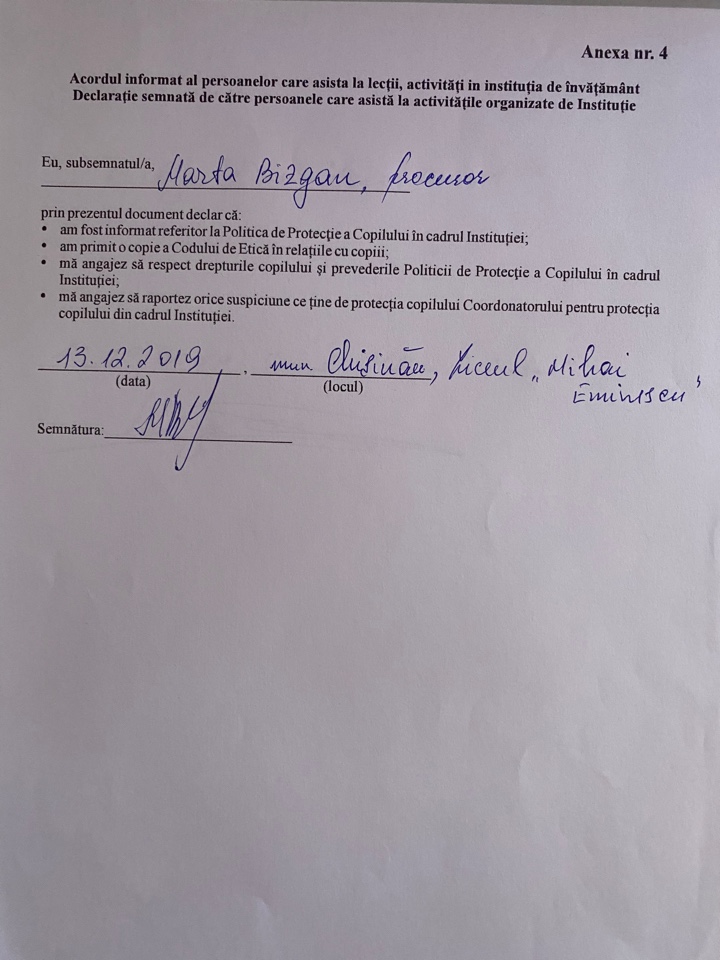 Anexa nr. 4
Acordul informat al persoanelor care asista la lecții, activități in instituția de învățământ
Declarație semnată de către persoanele care asistă la activitățile organizate de Instituție
Eu, subsemnatul/a, Marta Bizgan, procuror
prin prezentul document declar că:
• am fost informat referitor la Politica de Protecție a Copilului în cadrul Instituției;
• am primit o copie a Codului de Etică în relațiile cu copiii;
• mă angajez să respect drepturile copilului și prevederile Politicii de Protecție a Copilului în cadrul
Instituției;
• mă angajez să raportez orice suspiciune ce ține de protecția copilului Coordonatorului pentru protecția
copilului din cadrul Instituției.
13.12.2019, mun Chișinău, Liceul „Mihai
Eminescu”
(data) (locul)
Semnătura: